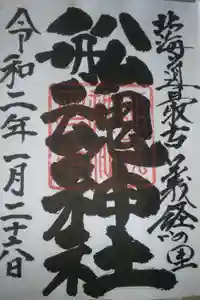 北海道最古 義経の里
舩魂神社
令和二年一月二十六日